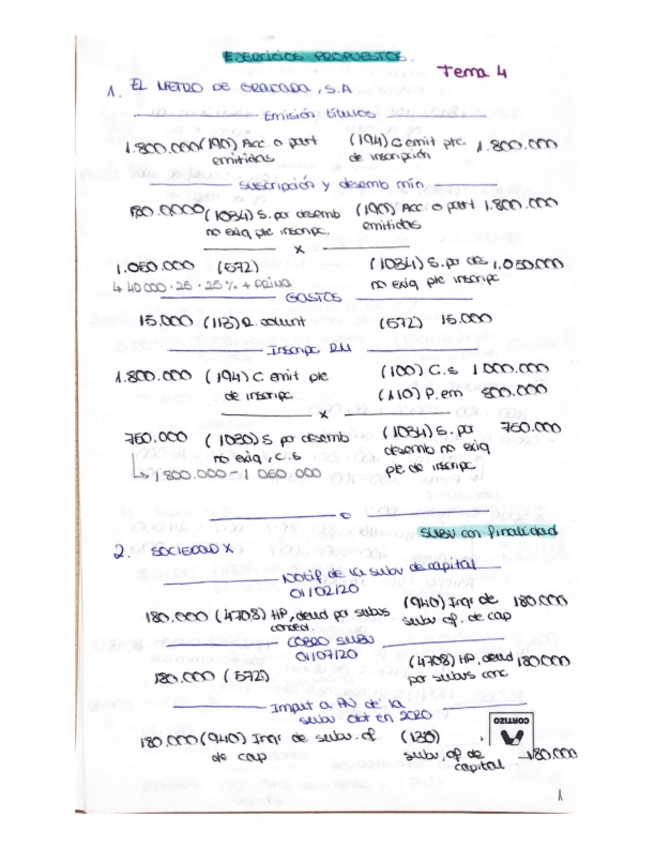 EJERCICIOS PROPUESTOS.
Tema 4
1. EL METRO DE GRANADA, S.A
Emisión títulos
1.800.000 (190) Acc o part (194) C emit pte 1.800.000
emitidas de inscripción
suscripción y desemb mín
180.0000 (1034) S. por desemb (190) Acc o part 1.800.000
no exig pte inscripc. emitidas
x
1.050.000 (572) (1034) S. por des 1.050.000
↳ 40000 · 25 · 25% + PRIMA no exig pte inscripc
GASTOS
15.000 (113) R. volunt (572) 15.000
Inscripc RM
1.800.000 (194) C emit pte (100) C.s 1 000.000
de inscripc. (110) P. em 800.000
x
750.000 (1030) S por desemb (1034) S. por 750.000
no exig, C.S desemb no exig
↳ 1.800.000 - 1 050.000 pte de inscripc
o
subv con finalidad
2. SOCIEDAD X
Notif. de la subv de capital
01/02/20
180.000 (4708) HP, deud por subvs (940) Ingr de 180.000
conced. subv of. de cap
COBRO SUBV
01/07/20
180.000 (572) (4708) HP, deud 180.000
por subvs conc
Imput a PN de la
subv obt en 2020
180.000 (940) Ingr de subv. of (130) 180.000
de cap subv. of de
capital
CORTIZO
1